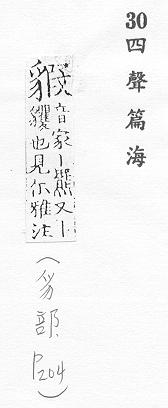 30 四聲篇海
音家丨羆又丨
貜也見尒雅注
(豸部. P204)